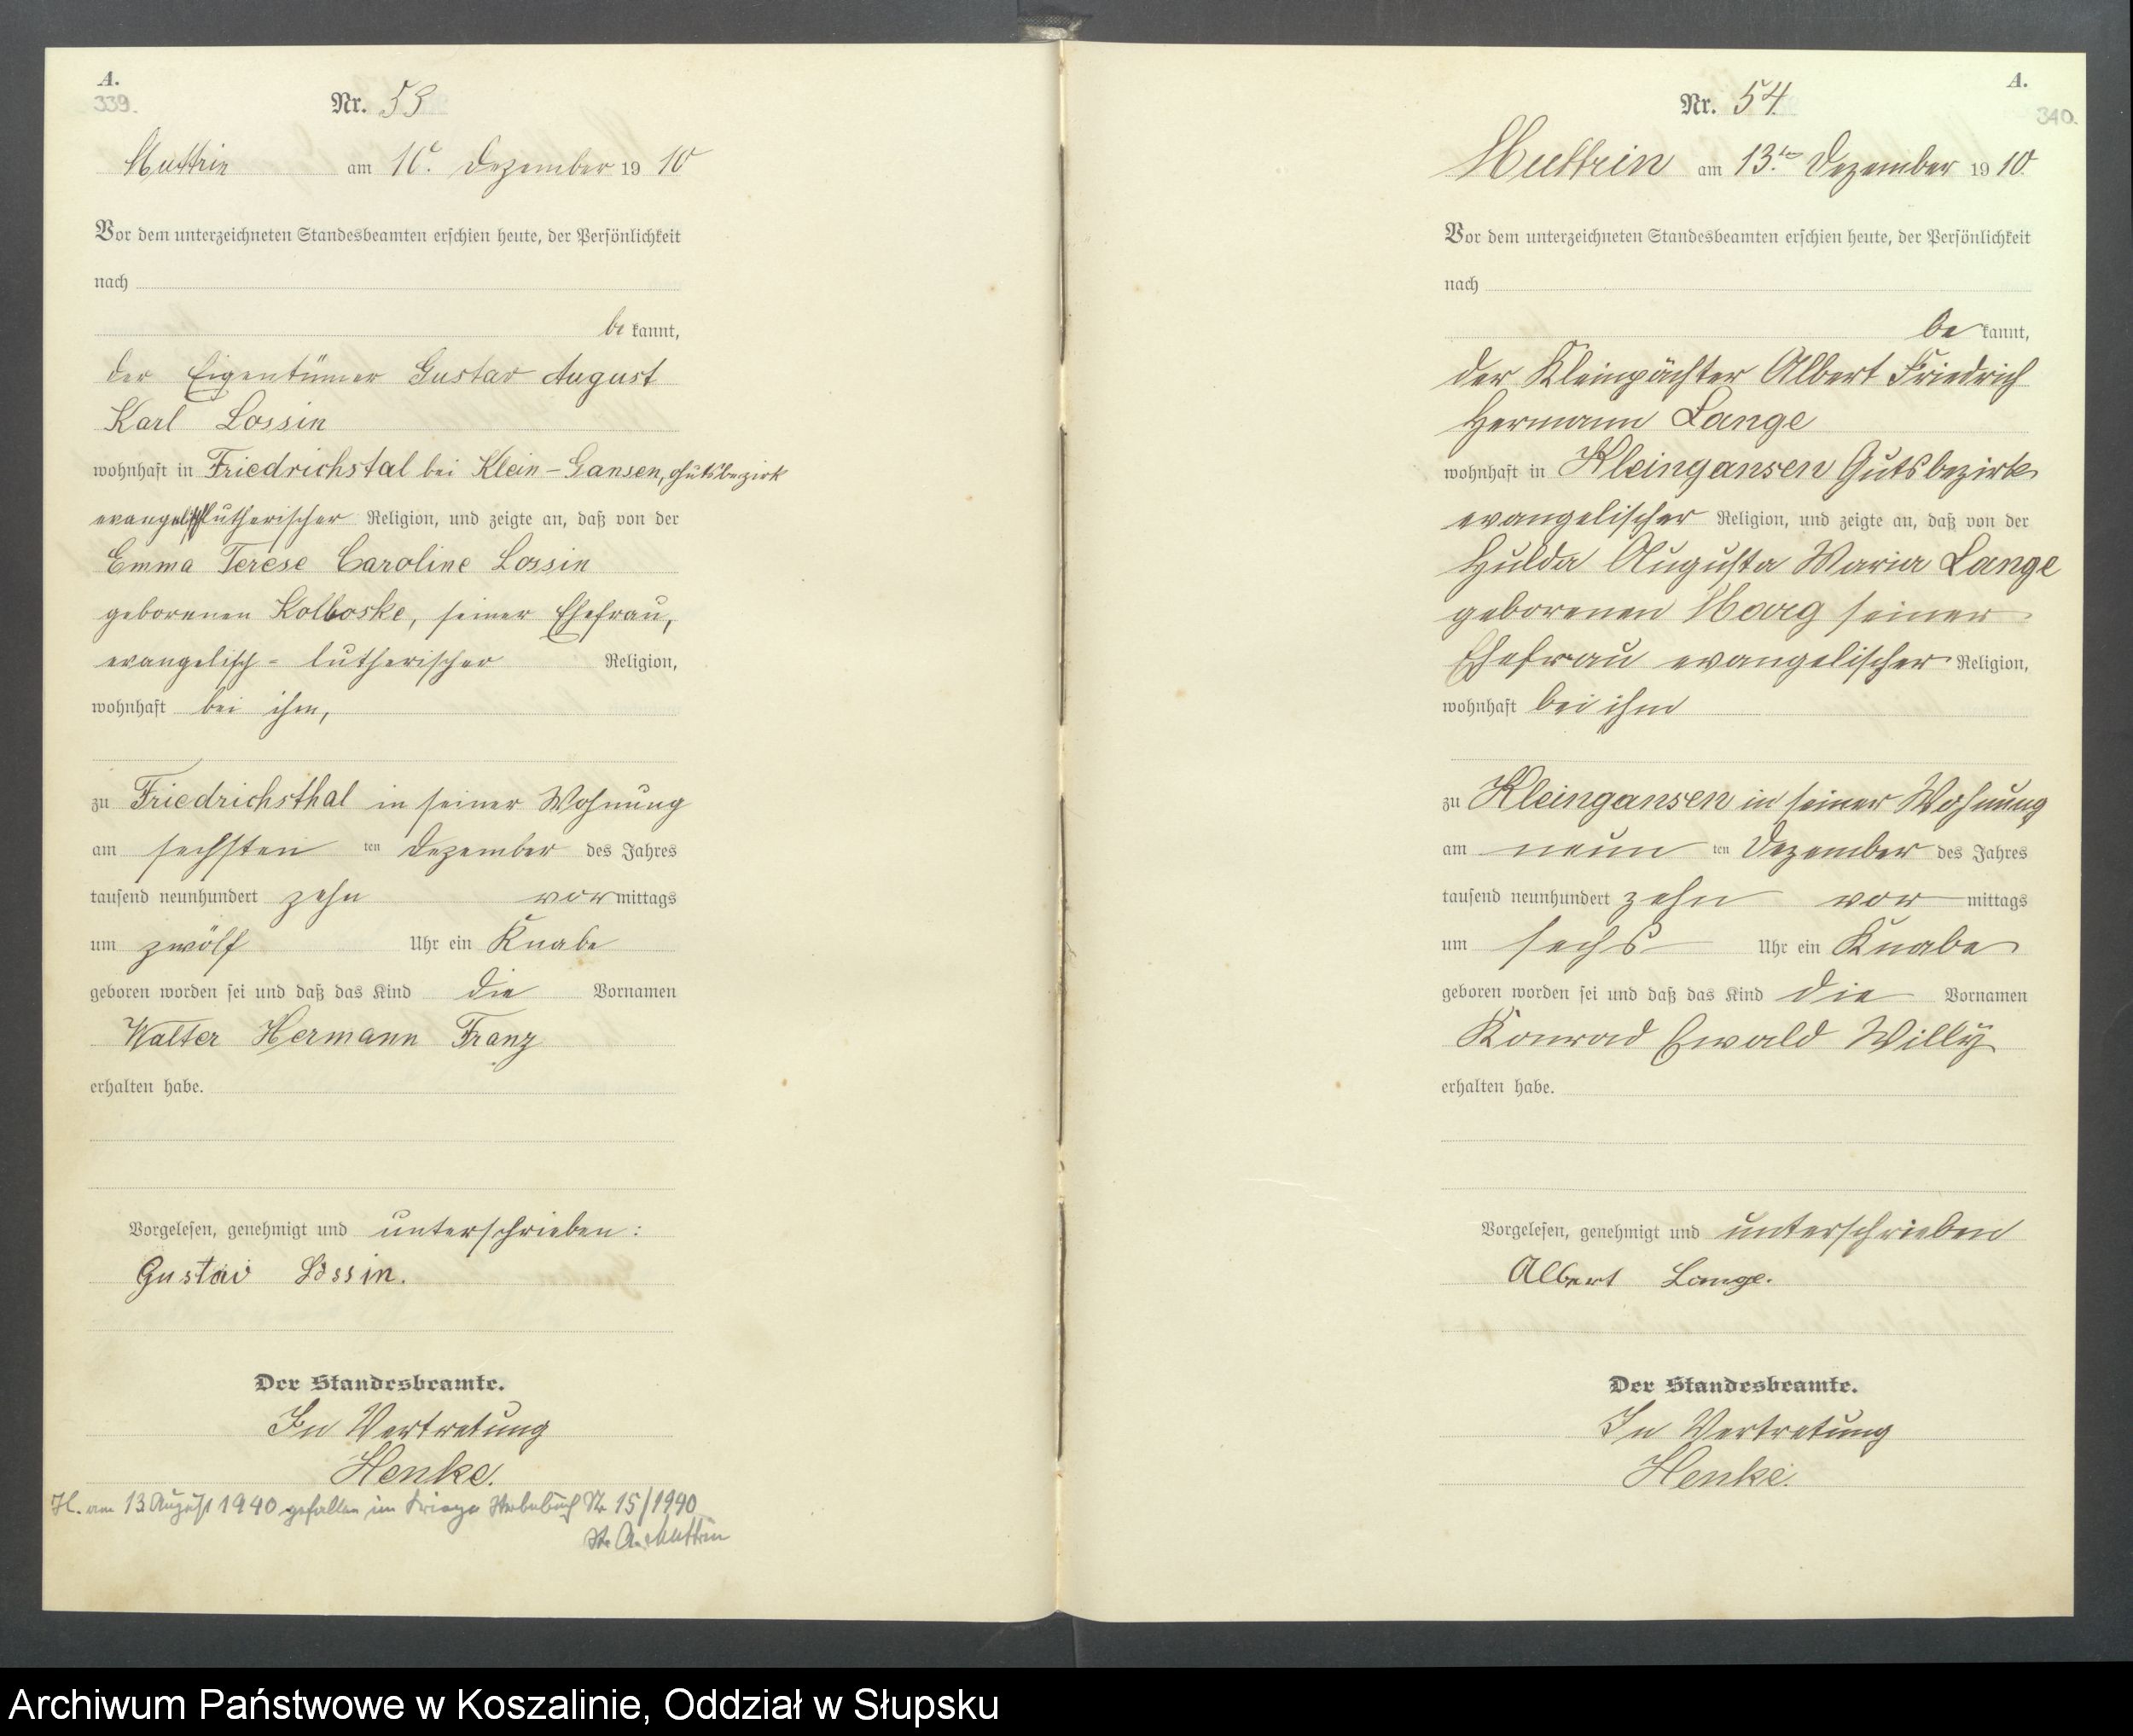 A.
339.
Nr. 53
Muttrin am 10. Dezember 1910
Vor dem unterzeichneten Standesbeamten erschien heute, der Persönlichkeit
nach
be kannt,
der Eigentümer Gustav August
Karl Lossin
wohnhaft in Friedrichstal bei Klein-Gansen, Gutsbezirk
evangelisch lutherischer Religion, und zeigte an, daß von der
Emma Terese Caroline Lossin
geborenen Kolboske, seiner Ehefrau,
evangelisch-lutherischer Religion,
wohnhaft bei ihm,
zu Friedrichsthal in seiner Wohnung
am sechsten ten Dezember des Jahres
tausend neunhundert zehn vormittags
um zwölf Uhr ein Knabe
geboren worden sei und daß das Kind die Vornamen
Walter Hermann Franz
erhalten habe.
Vorgelesen, genehmigt und unterschrieben:
Gustav Lossin.
Der Standesbeamte.
In Vertretung
Henke.
H. am 13 August 1940 gefallen im Kriege Sterbebuch Nr 15/1940
St. A. Muttrin
A.
340.
Nr. 54
Muttrin am 13ten Dezember 1910.
Vor dem unterzeichneten Standesbeamten erschien heute, der Persönlichkeit
nach
be kannt,
der Kleinpächter Albert Friedrich
Hermann Lange
wohnhaft in Kleingansen Gutsbezirk
evangelischer Religion, und zeigte an, daß von der
Hulda Augusta Maria Lange
geborenen Maag seiner
Ehefrau evangelischer Religion,
wohnhaft bei ihm
zu Kleingansen in seiner Wohnung
am neun ten Dezember des Jahres
tausend neunhundert zehn vor mittags
um sechs Uhr ein Knabe
geboren worden sei und daß das Kind die Vornamen
Konrad Ewald Willy
erhalten habe.
Vorgelesen, genehmigt und unterschrieben
Albert Lange.
Der Standesbeamte.
In Vertretung
Henke.
Archiwum Państwowe w Koszalinie, Oddział w Słupsku